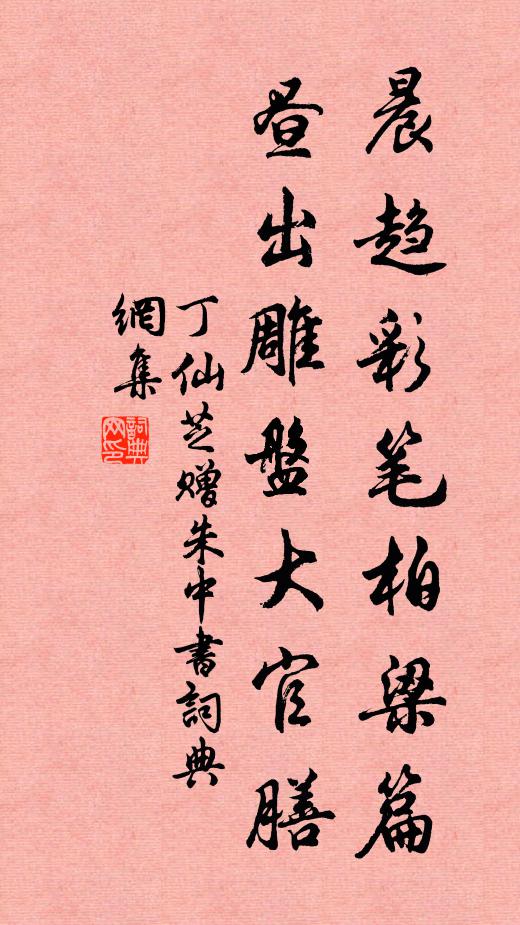 晨趋彩笔柏梁篇
昼出雕盘大官膳
丁仙芝赠朱中書詞典
網集
詞典网印